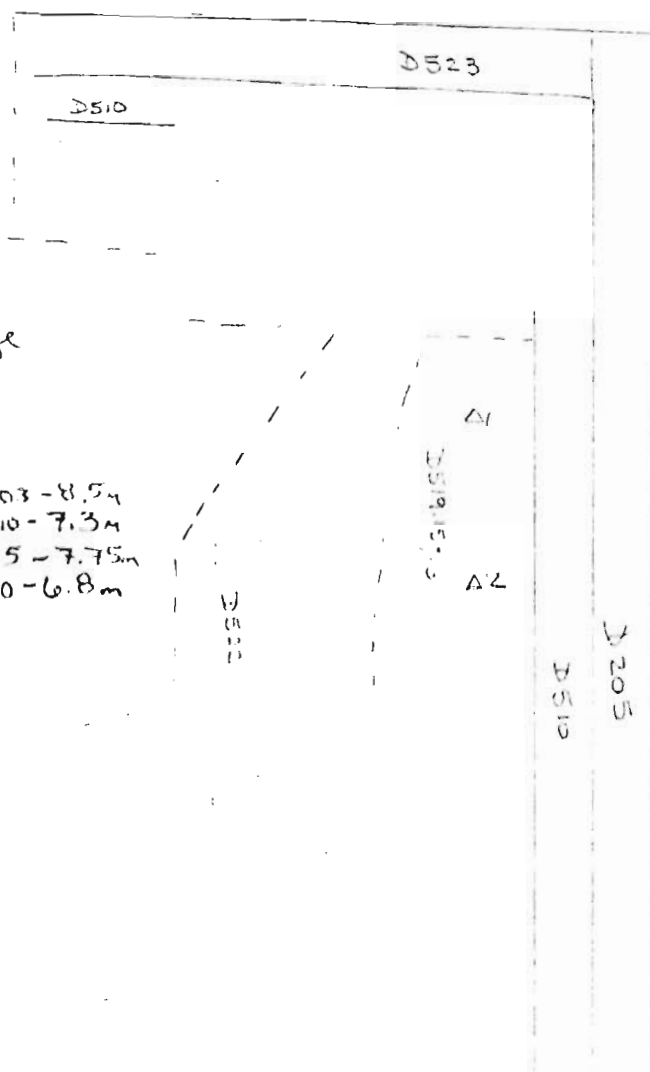 D523
D510
03 - 8.5m
10 - 7.3m
5 - 7.75m
0 - 6.8m
Δ1
Δ2
D510
D205